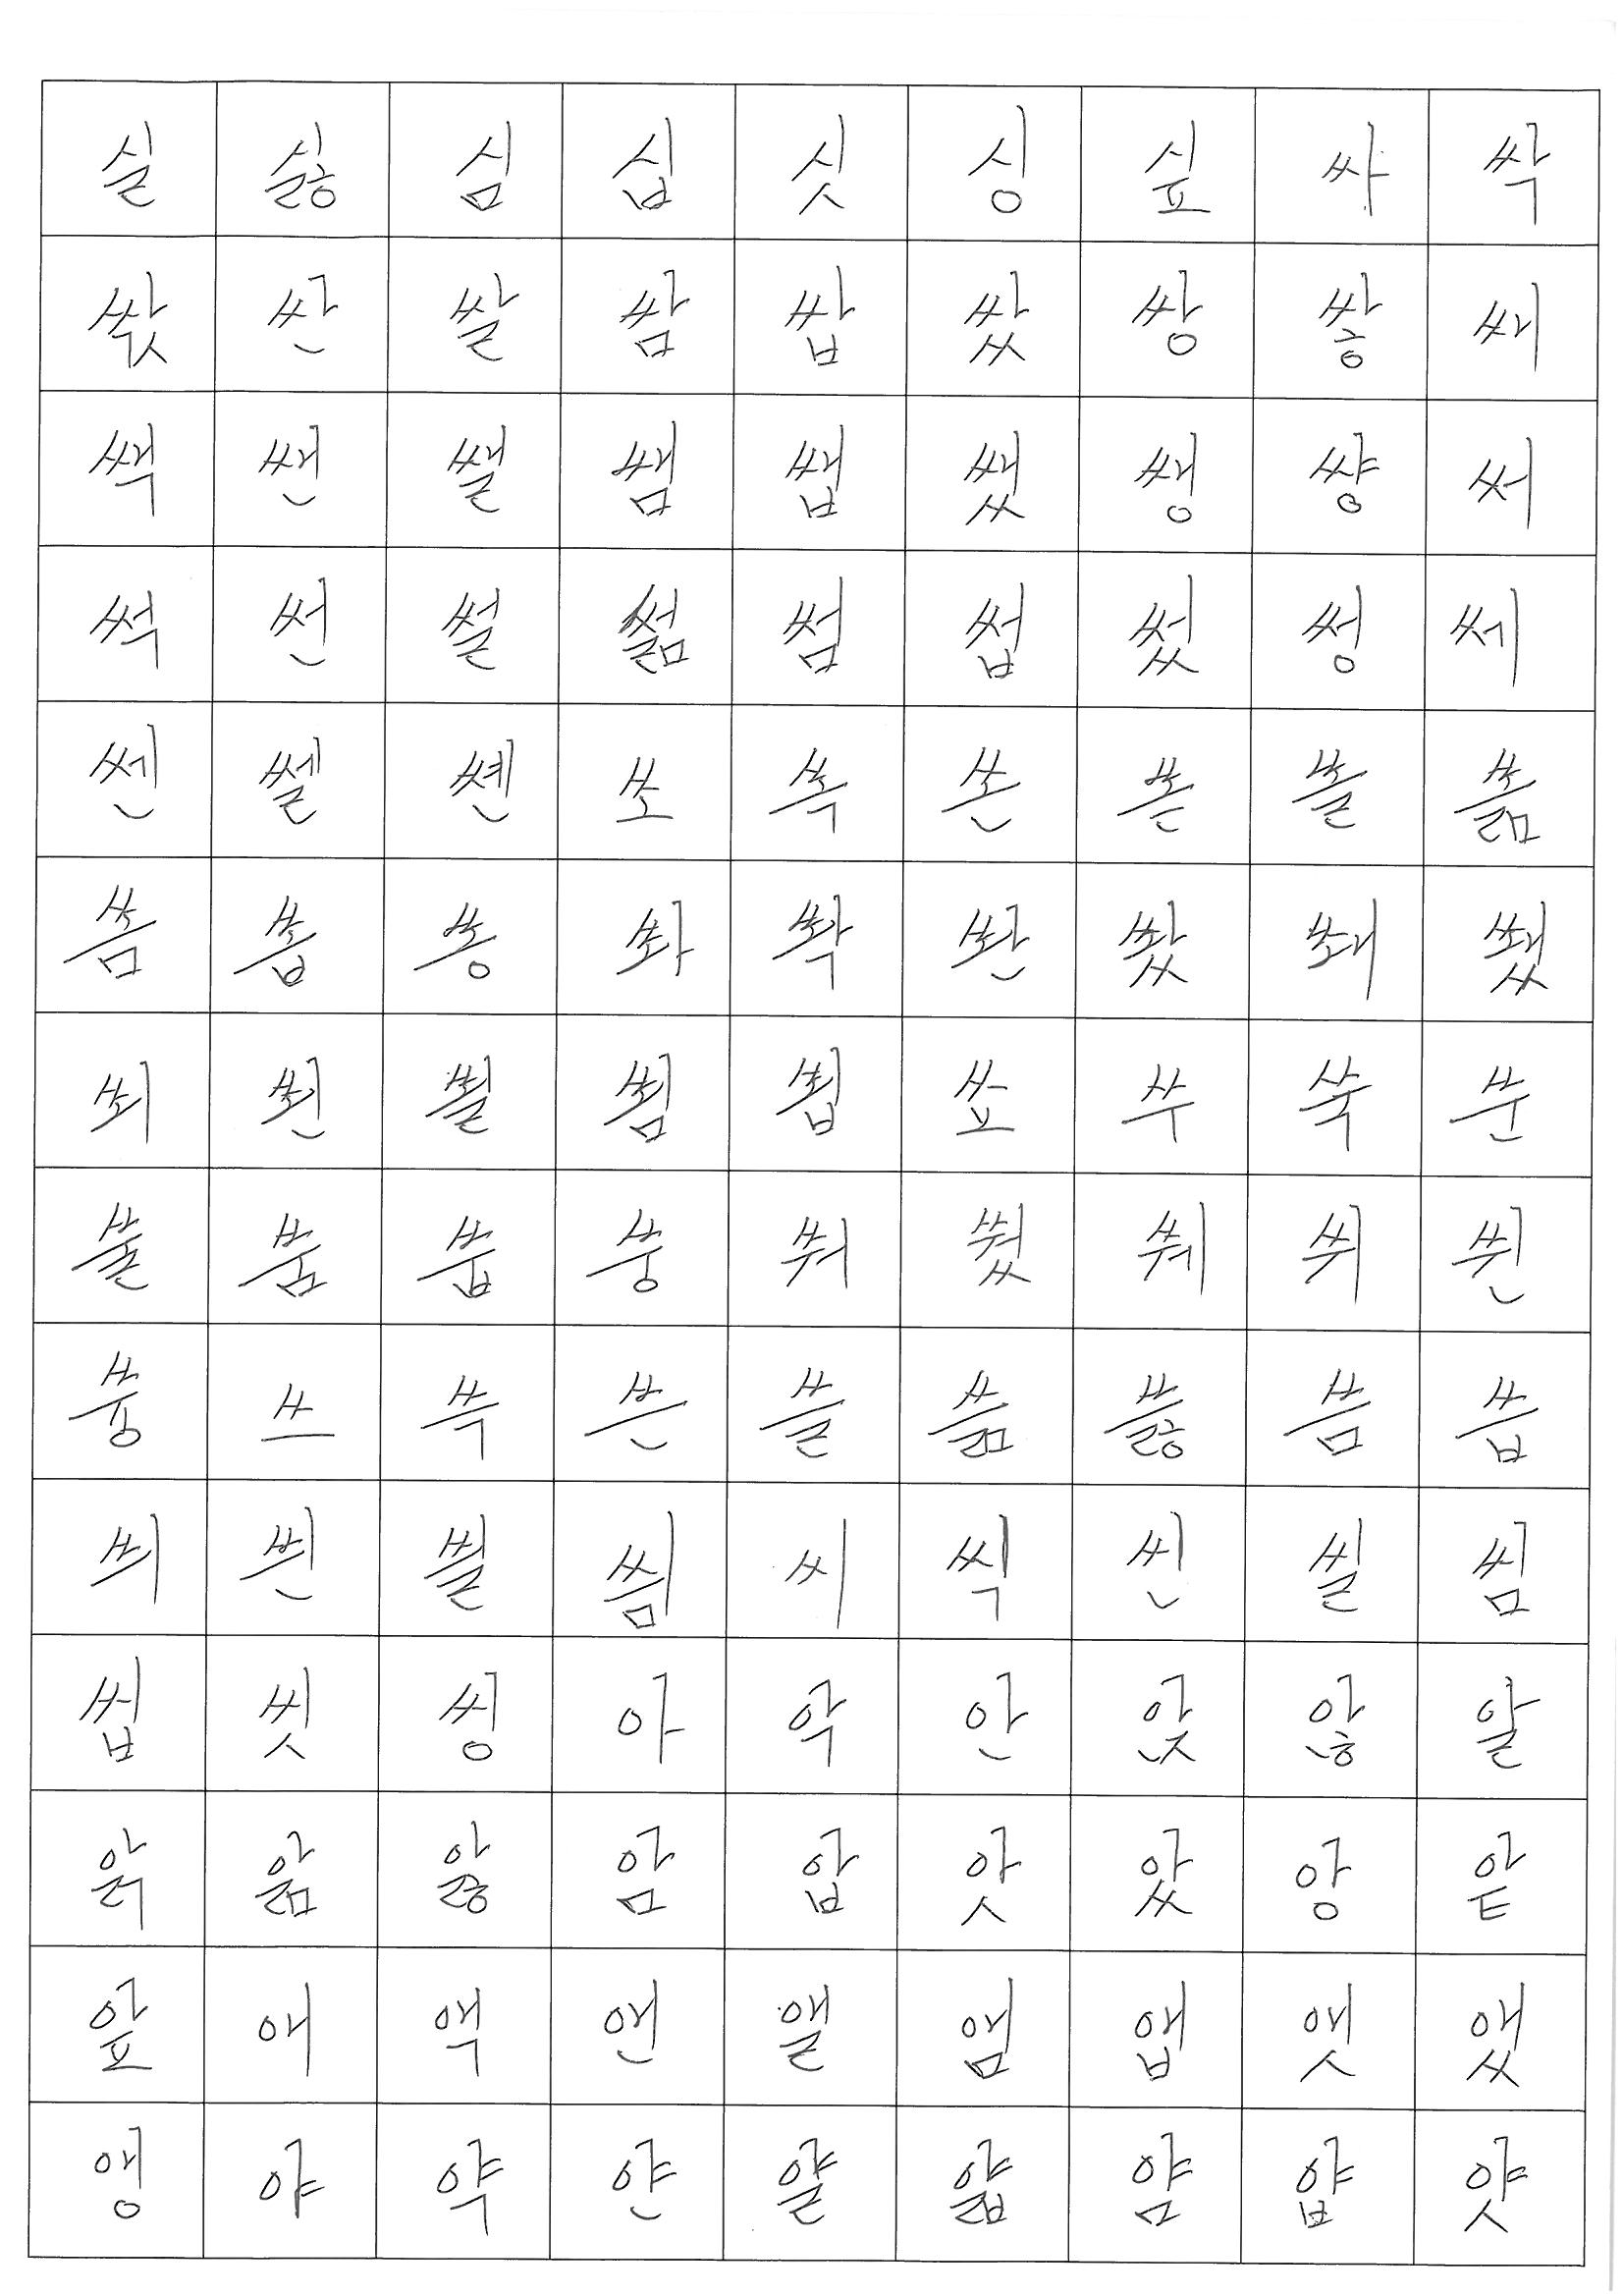 실 싫 심 십 싯 싱 싶 싸 싹
싻 싼 쌀 쌈 쌉 쌌 쌍 쌓 쌔
쌕 쌘 쌜 쌤 쌥 쌨 쌩 썅 써
썩 썬 썰 썲 썸 썹 썼 썽 쎄
쎈 쎌 쏀 쏘 쏙 쏜 쏟 쏠 쏢
쏨 쏩 쏭 쏴 쏵 쏸 쐈 쐐 쐤
쐬 쐰 쐴 쐼 쐽 쑈 쑤 쑥 쑨
쑬 쑴 쑵 쑹 쒀 쒔 쒜 쒸 쒼
쓩 쓰 쓱 쓴 쓸 쓺 쓿 씀 씁
씌 씐 씔 씜 씨 씩 씬 씰 씸
씹 씻 씽 아 악 안 앉 않 알
앍 앎 앓 암 압 앗 았 앙 앝
앞 애 액 앤 앨 앰 앱 앳 앴
앵 야 약 얀 얄 얇 얌 얍 얏